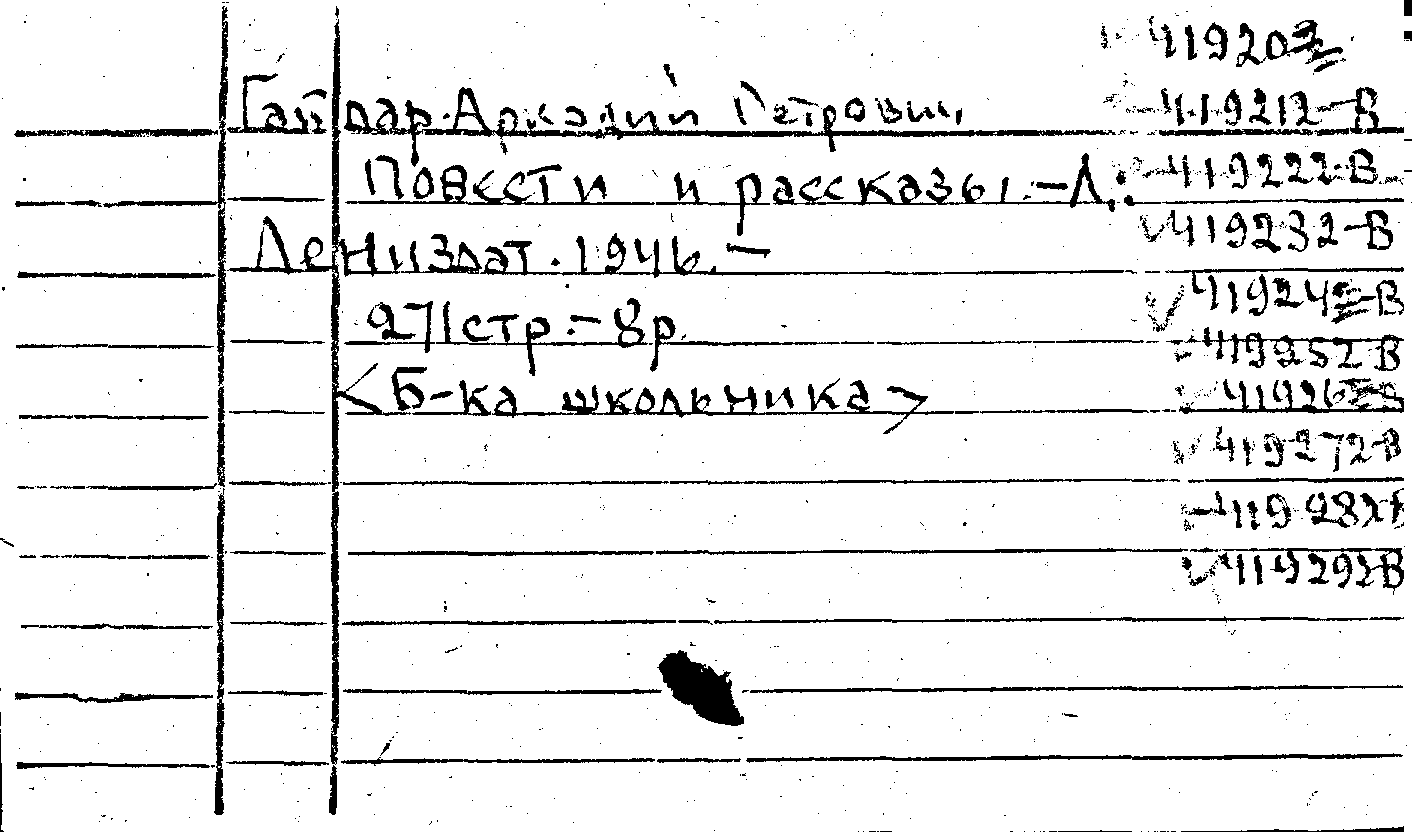 Гайдар Аркадий Петрович
Повести и рассказы. - Л.:
Лениздат. 1946. -
271 стр. - 8 р.
<Б-ка школьника>
419203
419212-В
419222-В
419232-В
419242-В
419252 В
419272-В
419292-В